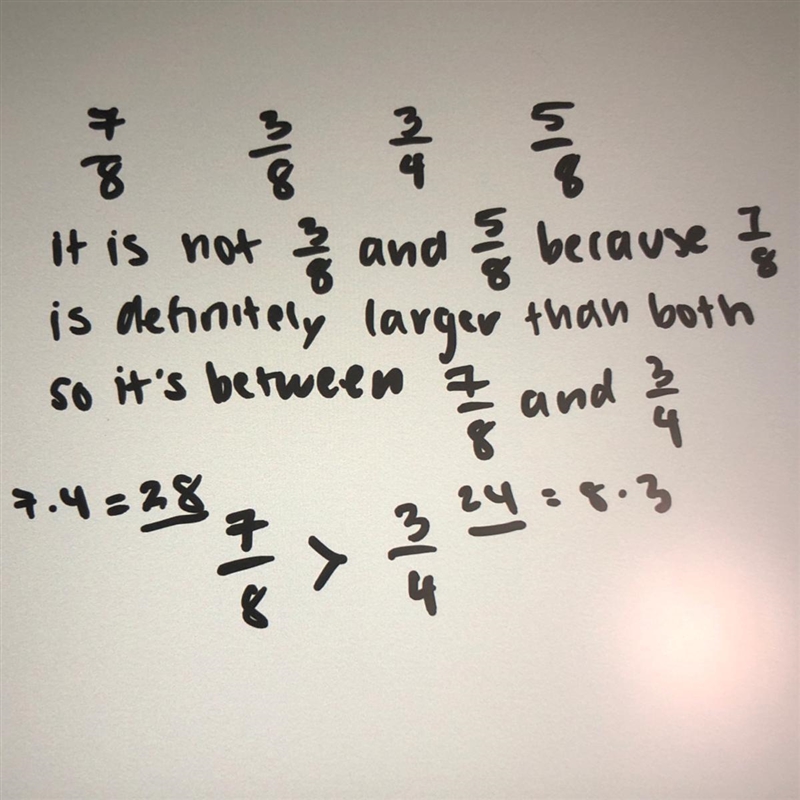 7/8 3/8 3/4 5/8
it is not 3/8 and 5/8 because 7/8
is definitely larger than both
so it's between 7/8 and 3/4
7·4=28 7/8 > 3/4 24=8·3